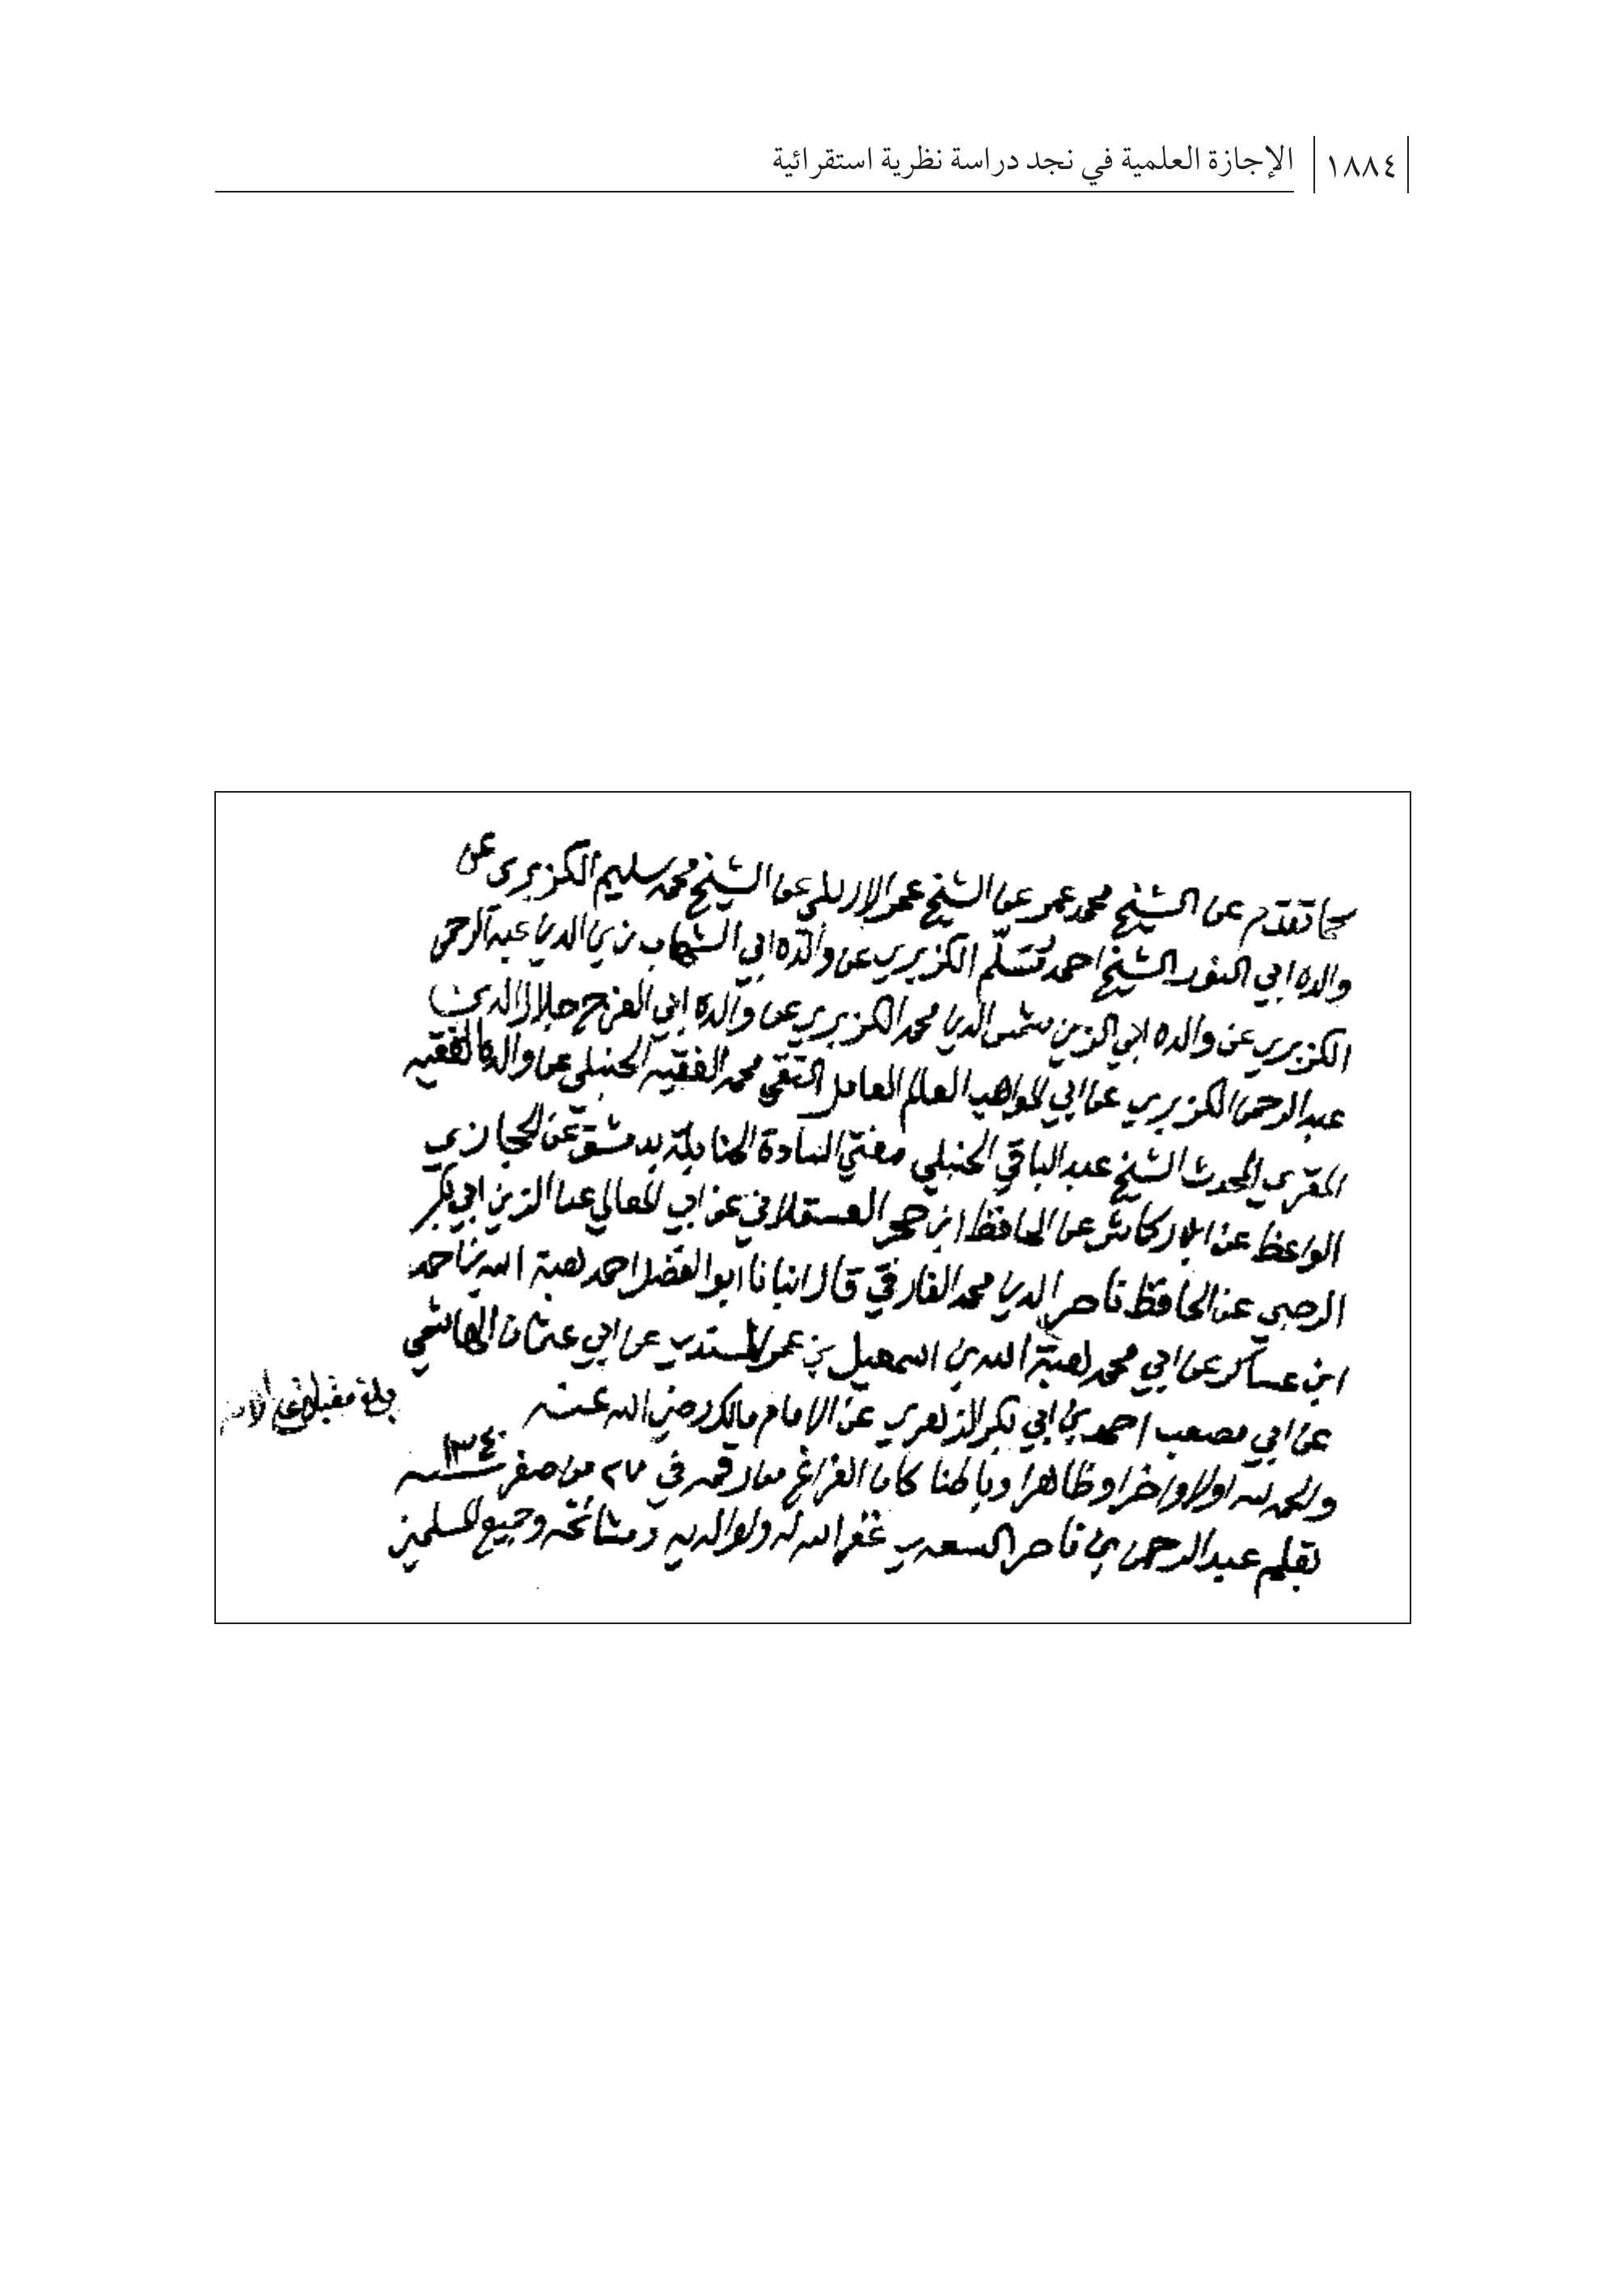 ١٨٨٤ الإجازة العلمية في نجد دراسة نظرية استقرائية
كما تقدم عن الشيخ محمد عمر عن الشيخ عمر الاربلي عن الشيخ محمد سليم الكزبري عن
والده ابي النور الشيخ احمد مسلم الكزبري عن والده ابي الشهاب زين الدين عبد الرحمن
الكزبري عن والده ابي الزين شمس الدين محمد الكزبري عن والده ابي الفرج جلال الدين
عبد الرحمن الكزبري عن ابي المواهب العلم العامل التقي محمد الفقيه الحنبلي عن والده الفقيه
المقري المحدث الشيخ عبد الباقي الحنبلي مفتي السادة الحنابلة بدمشق عن الحجازي
الواعظ عن ابن اركماش عن الحافظ ابن حجر العسقلاني عن ابي المعالي عن الزين ابي بكر
الرحبي عن الحافظ ناصر الدين محمد الفارقي قال انبانا ابو الفضل احمد هبة الله بن احمد
ابن عساكر عن ابي محمد هبة الله بن اسمعيل بن عمر المسندي عن ابي عثمان الهاشمي
عن ابي مصعب احمد بن ابي بكر الازهري عن الامام مالك رضي الله عنه
والحمد لله اولا واخرا وظاهرا وباطنا كان الفراغ من رقمه في ٢٧ من صفر سنة ١٣٤٠
بقلم عبد الرحمن بن ناصر السعدي غفر الله له ولوالديه ومشائخه وجميع المسلمين